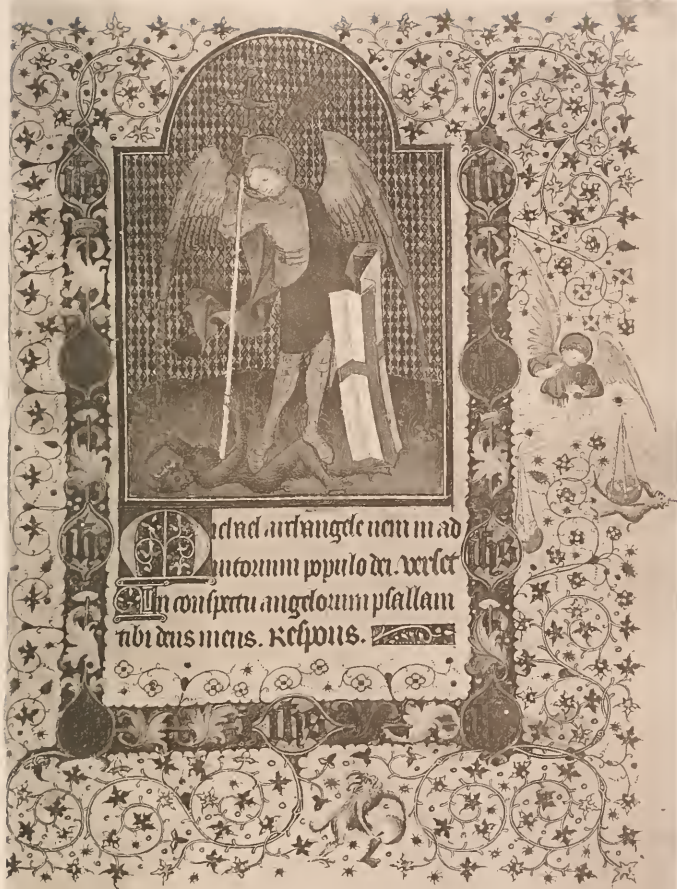 ihs ihs
Michael archangele veni in ad
iutorium populo dei. Verset
In conspectu angelorum psallam
tibi deus meus. Respons.
ihs ihs
ihs